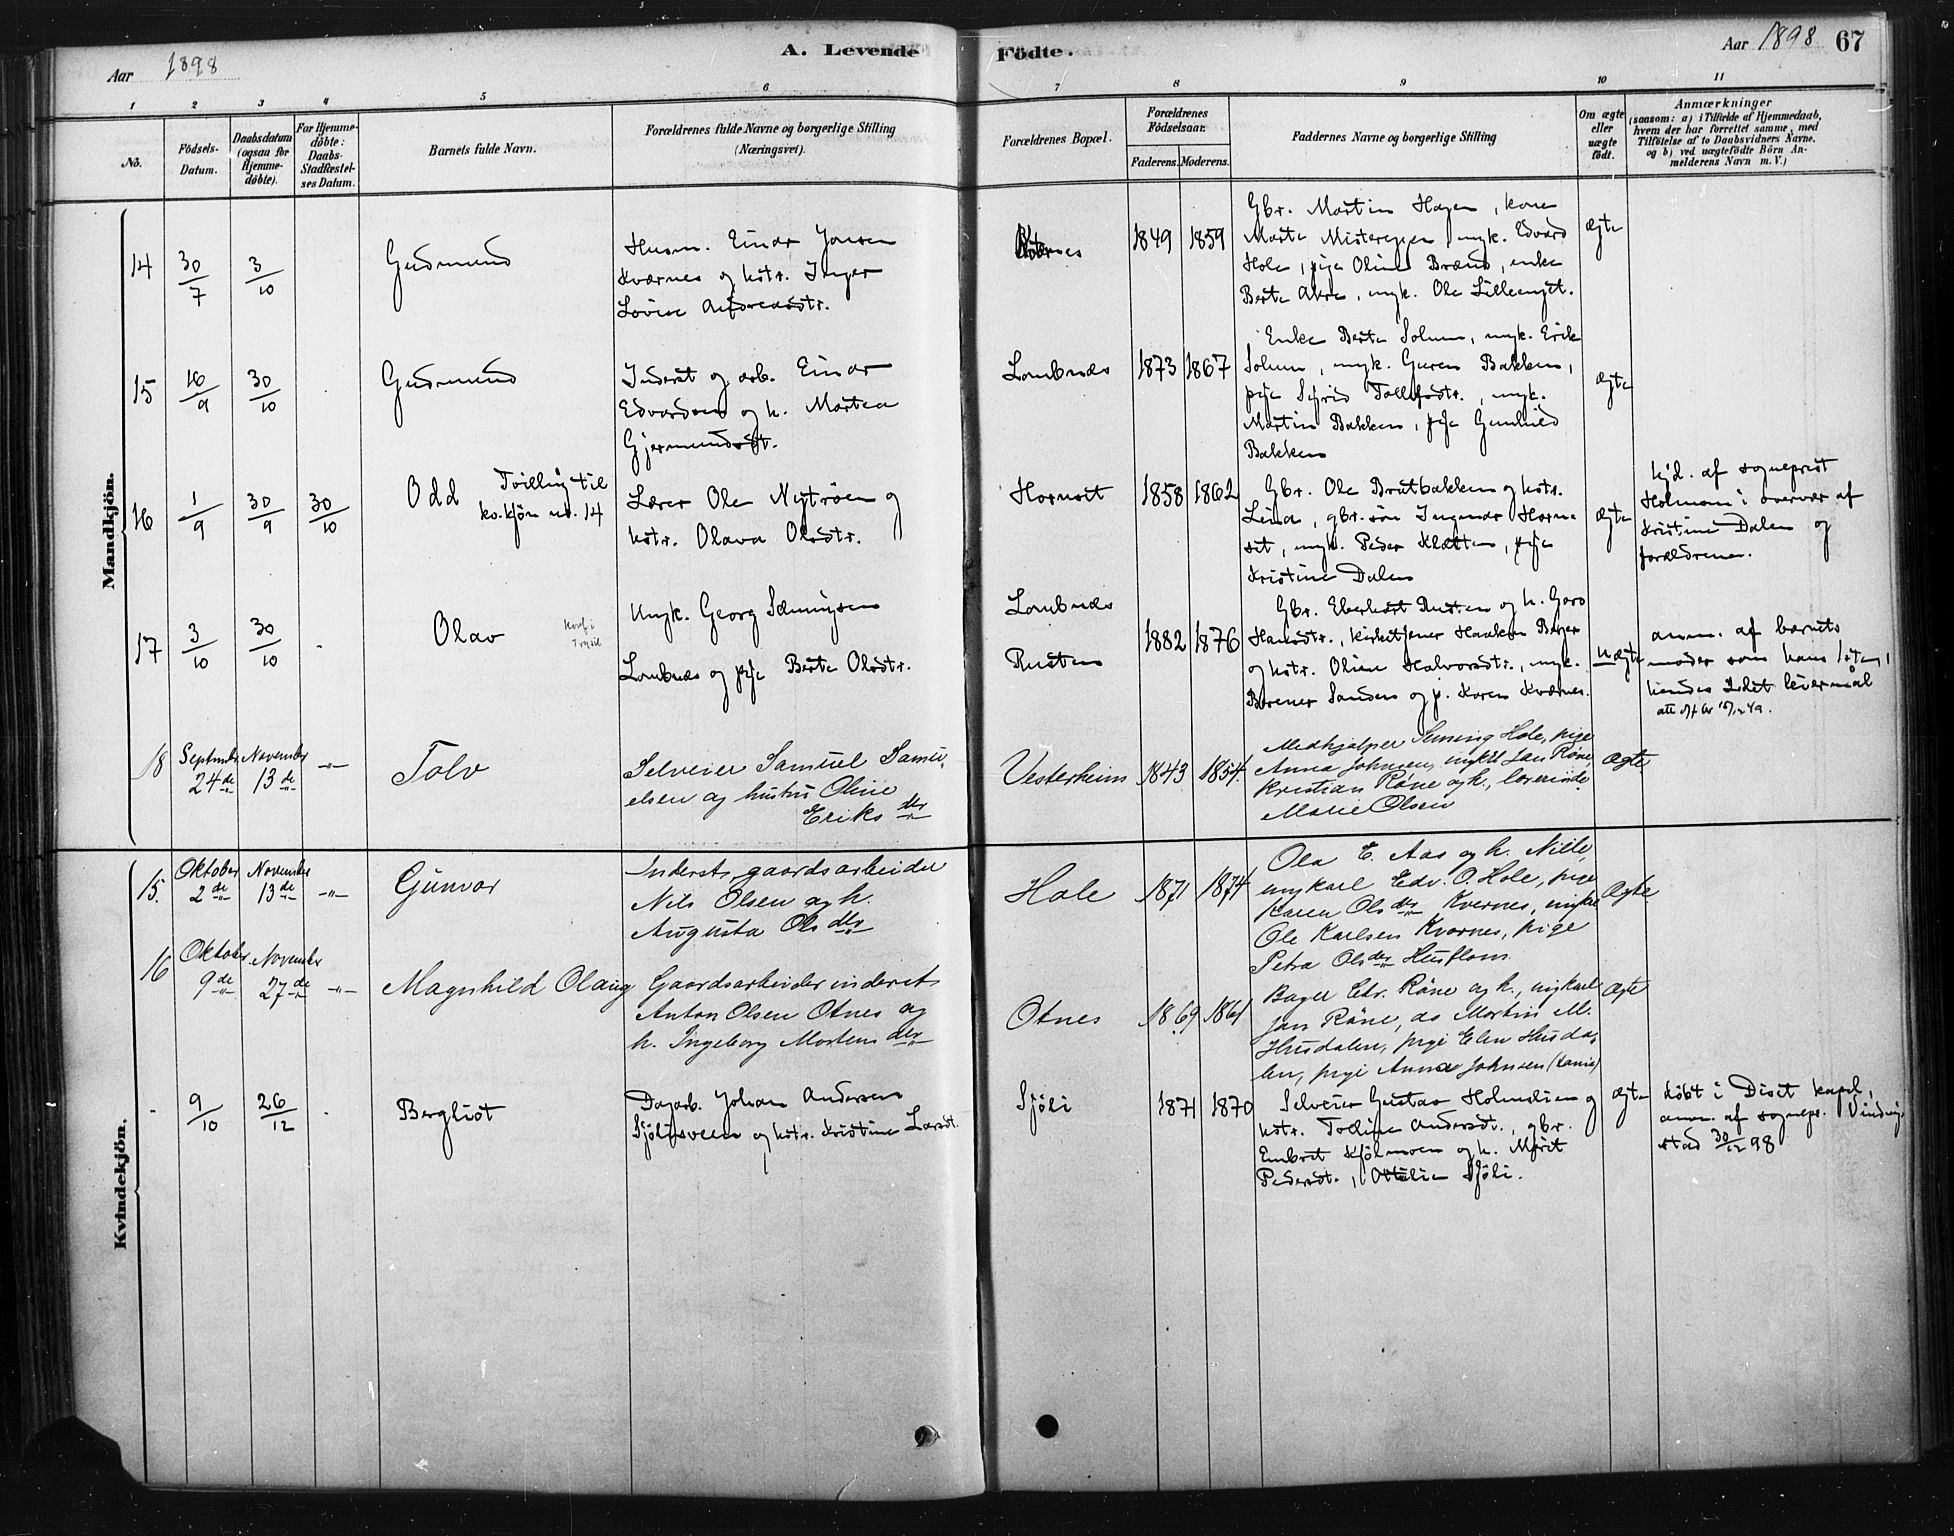 Aar 1898
A. Levende Födte.
Aar 1898 67
1 2 3 4 5 6 7 8 9 10 11
Nö.
Födsels-Datum.
Daabsdatum (ogsaa for Hjemme-döbte).
For Hjemme-döbte: Daabs-Stadfæstel-ses Datum.
Barnets fulde Navn.
Forældrenes fulde Navne og borgerlige Stilling
(Næringsvei).
Forældrenes Bopæl.
Forældrenes Födselsaar.
Faderens. Moderens.
Faddernes Navne og borgerlige Stilling
Om ægte eller uægte födt.
Anmærkninger
(saasom: a) i Tilfælde af Hjemmedaab,
hvem der har forrettet samme, med
Tilföielse af to Daabsvidners Navne,
og b) ved uægtefödte Börn An-
melderens Navn m. V.)
Mandkjön.
14 30/7 3/10 Gudmund
Husm. Einar Jonsen
Kværnes og hstr. Inger
Lovise Andreasdtr.
1849 1859
Gbr. Martin Hagen, kone
Marte Mistereggen, ungk. Edvard
Hole, pige Oline Brænd, enke
Berte Akre, ungk. Ole Lilleenget.
ægte
15 16/9 30/10 Gudmund
Inderst og arb. Einar
Edvardsen og h. Martea
Gjermundsdt.
Lombnæs 1873 1867
Enke Berte Solum, ungk. Erik
Solum, ungk. Guren Bakken,
pige Sigrid Tollefsdtr., ungk.
Martin Bakken, pige Gunhild
Bakken
ægte
16 1/9 30/9 30/10 Odd Tvilling til
kv.kjön no. 14
Lærer Ole Nytrøen og
hstr. Olava Olsdtr.
Hornset 1858 1862
Gbr. Ole Bratbakken og hstr.
Lina, gbr. søn Ingvar Horn-
set, ungk. Peder Kletten, pige
Kristine Dalen
ægte
hjd. af sogneprest
Holmsen i overvær af
Kristine Dalen og
forældrene.
17 3/10 30/10 Olav
Konf. i
Trysil
Ungk. Georg Sæmingsen
Lombnæs og pige Berte Olsdtr.
Lombnæs
Rusten
1882 1876
Gbr. Eberhart Rusten og h. Goro
Hansdtr., kirketjener Haakon Berger
og hstr. Oline Halvorsdtr., ungk.
Berner Sanden og p. Karen Kværnes.
uægte
anm. af barnets
moder som hans 1ste,
hendes 2det leiermål
18 September 24de November 13de -"- Tolv
Selveier Samuel Samu-
elsen og hustru Oline
Eriks dtr
Vesterheim 1843 1854
Medhjælper Seming Hole, pige
Anna Johnsen, ungkl Jan Røne,
Kristian Røne og k., lærerinde
Marie Olsen
Ægte
Kvindekjön.
15. Oktober 2de November 13de -"- Gunvor
Inderst, gaardsarbeider
Nils Olsen og h.
Augusta Ols dtr
Hole 1871 1874
Ola E. Aas og h. Nille,
ungkarl Edv. O. Hole, pige
Karen Olsdtr Kvernes, ungkl
Ole Karlsen Kvernes, pige
Petra Olsdtr Husflom
Ægte
16 Oktober 9de November 27de -"- Magnhild Olaug
Gaardsarbeider inderst
Anton Olsen Otnes og
h. Ingeborg Mortens dtr
Otnes 1869 1861
Bager Chr. Røne og h., ungkarl
Jan Røne, do Martin M.
Husdalen, pige Elen Husda-
len, pige Anna Johnsen
Ægte
9/10 26/12 Bergliot
Dagarb. Johan Andersen
Sjölisveen og hstr. Kristine Larsdt.
Sjöli 1871 1870
Selveier Gustav Holmslien og
hstr. Tolline Andersdt., gbr.
Embret Kjölmoen og h. Marit
Pedersdt., Ottilie Sjöli.
ægte
döbt i Diset kapel,
anm. af sognepr. Vinding-
stad 30/12 98